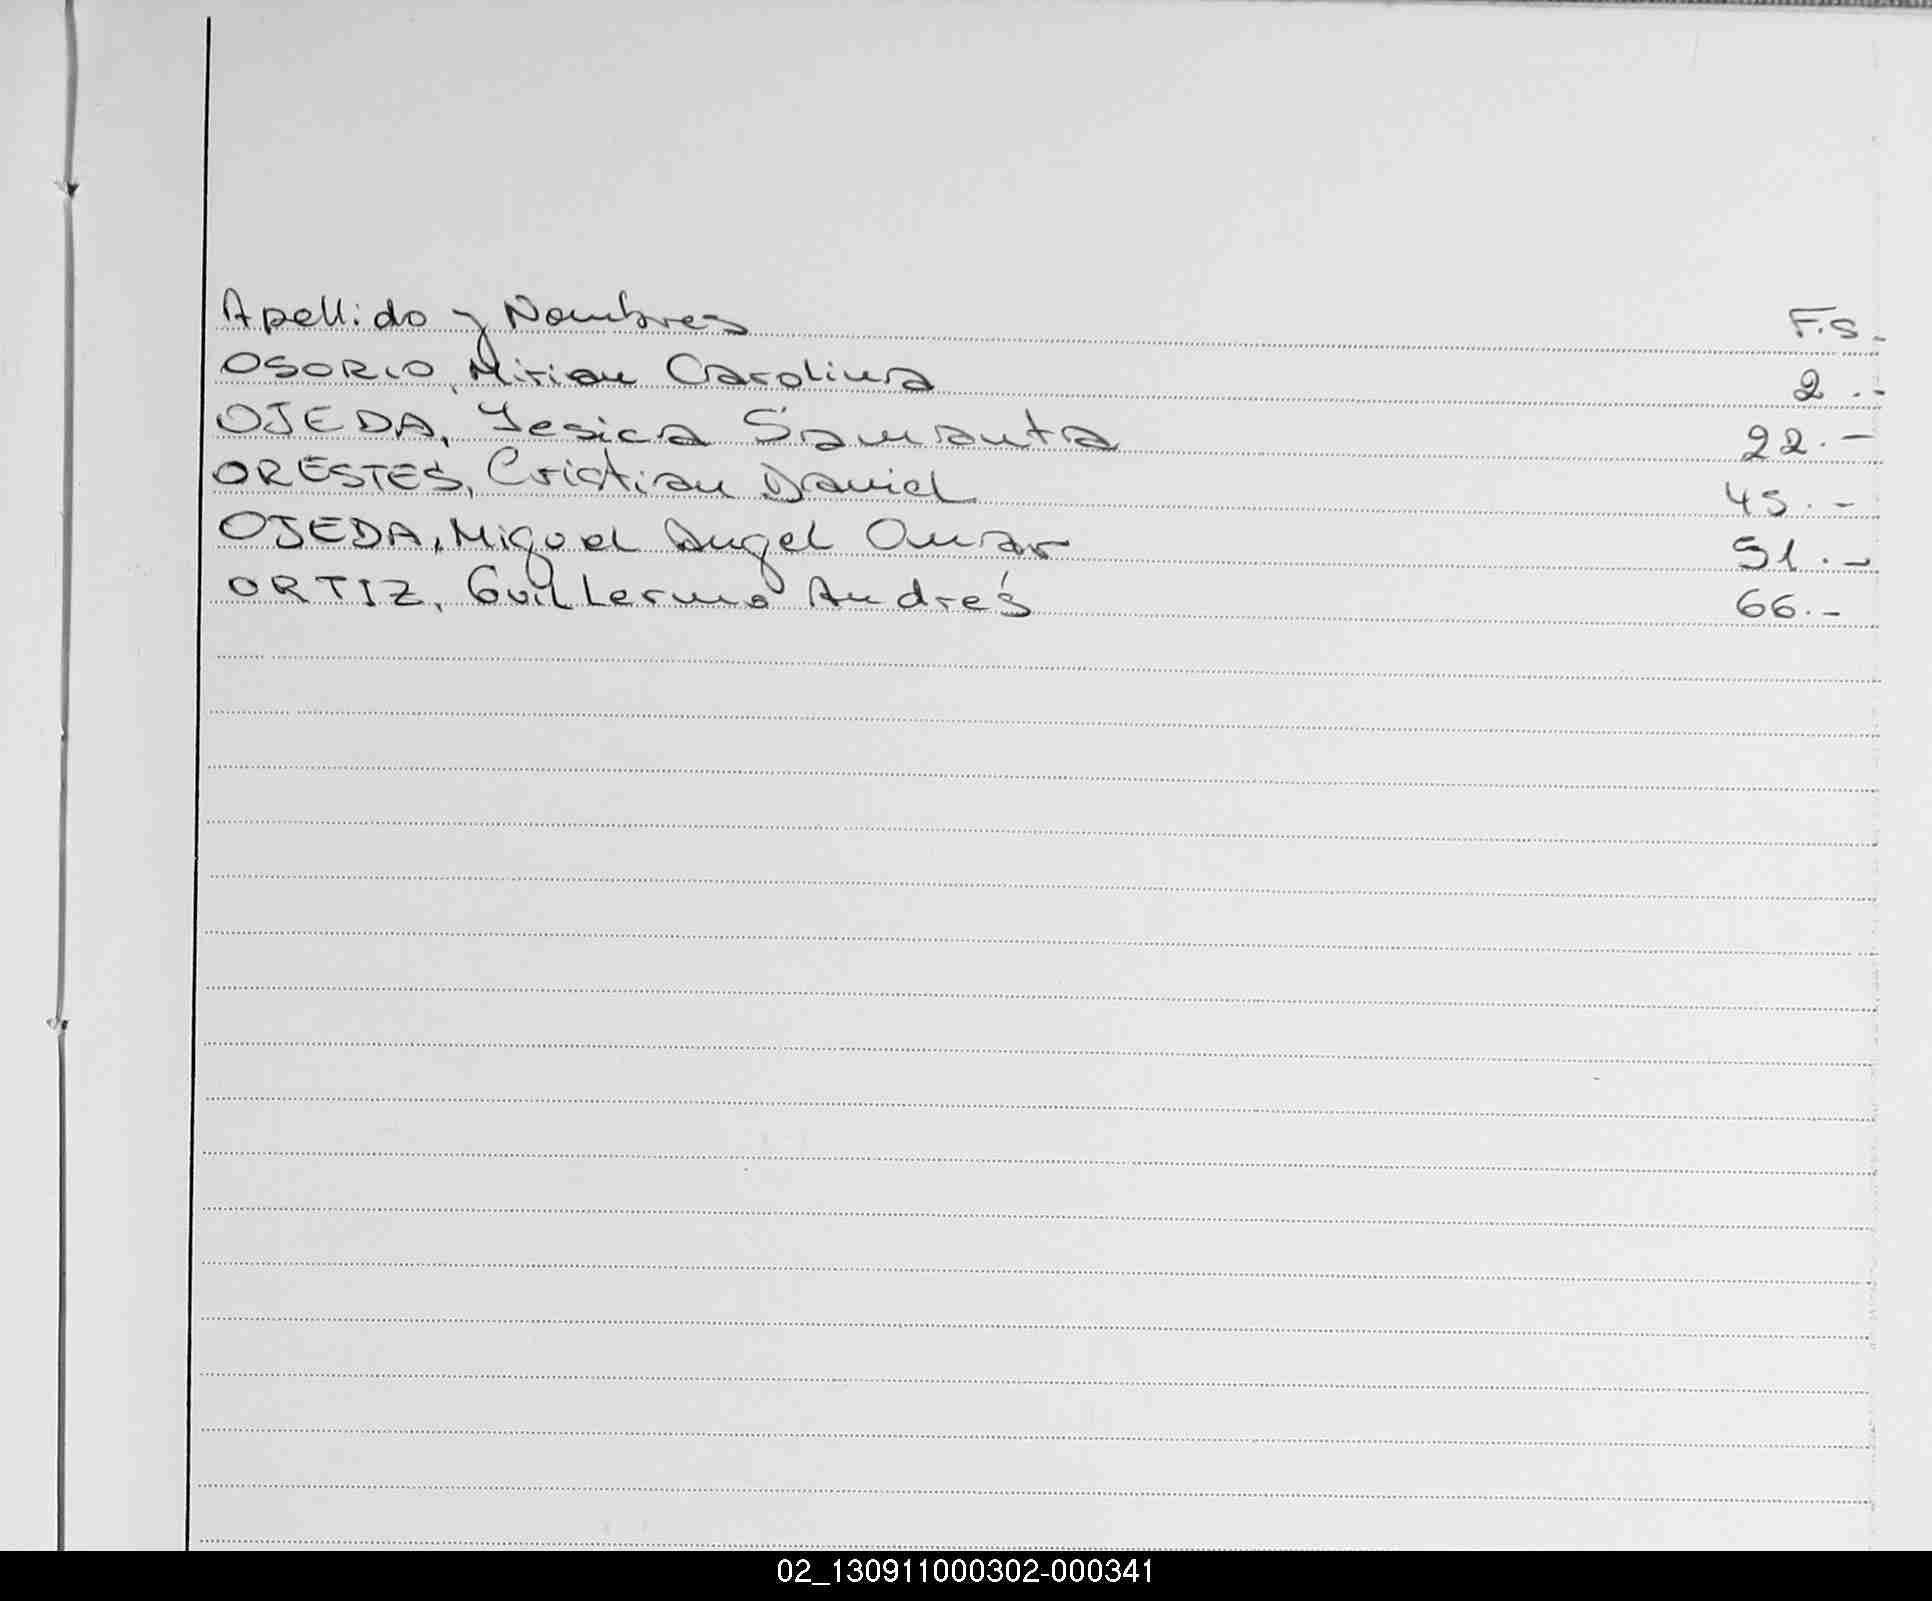 Apellido y Nombres F.S.
OSORIO, Mirian Carolina 2.-
OJEDA, Yesica Samanta 22.-
ORESTES, Cristian David 45.-
OJEDA, Miguel Angel Omar 51.-
ORTIZ, Guillermo Andrés 66.-
02_130911000302-000341